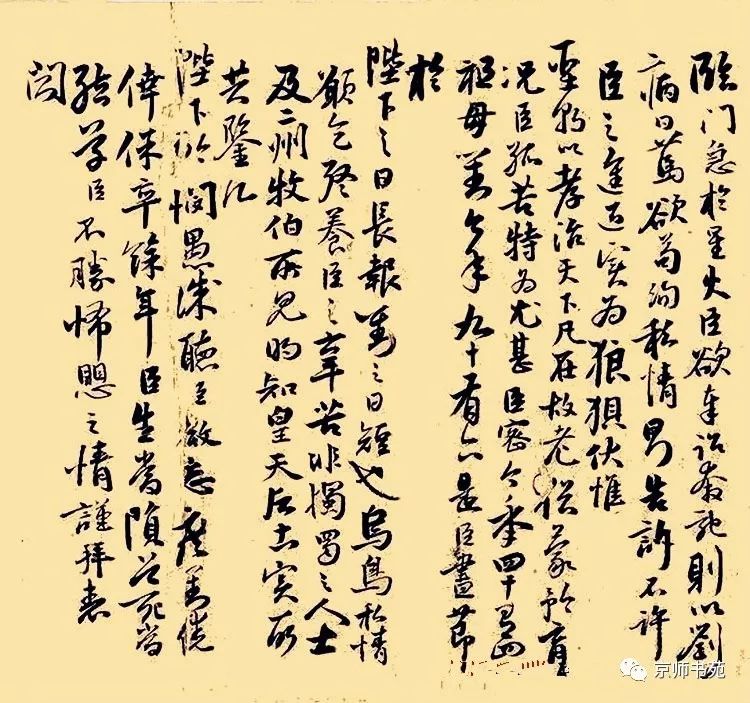 臨門急於星火臣欲奉詔奔馳則以劉
病日篤欲苟徇私情則告訴不許
臣之進退實為狼狽伏惟
聖朝以孝治天下凡在故老猶蒙矜育
況臣孤苦特為尤甚臣密今年四十有四
祖母劉今年九十有六是臣盡節
於
陛下之日長報劉之日短也烏鳥私情
願乞終養臣之辛苦非獨蜀之人士
及二州牧伯所見明知皇天后土實所
共鑒
陛下矜憫愚誠聽臣微志庶劉僥
倖保卒餘年臣生當隕首死當
結草臣不勝怖愳之情謹拜表
聞
京师书苑